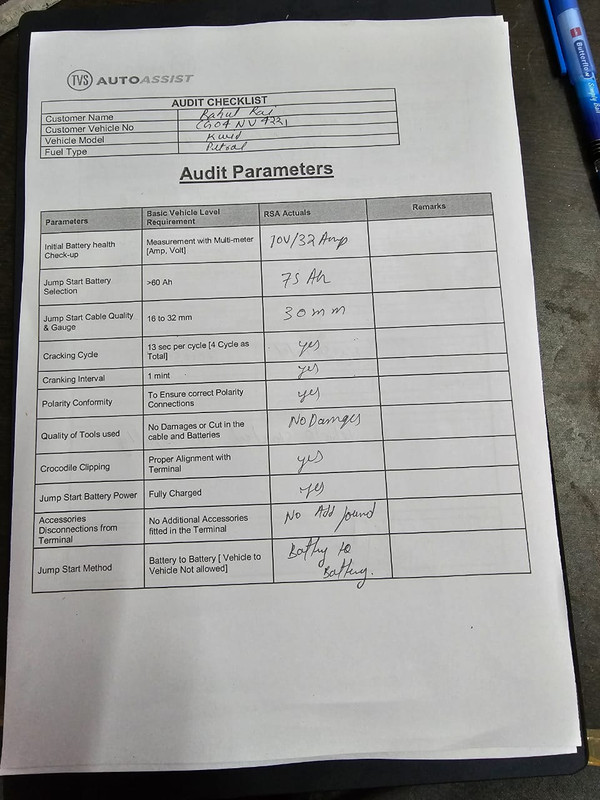 TVS AUTOASSIST
AUDIT CHECKLIST
Customer Name Rahul Rai
Customer Vehicle No CG04 NV 4221
Vehicle Model Kwid
Fuel Type Petrol
Audit Parameters
Parameters Basic Vehicle Level Requirement RSA Actuals Remarks
Initial Battery health Check-up Measurement with Multi-meter [Amp, Volt] 10V/32 Amp
Jump Start Battery Selection >60 Ah 75 Ah
Jump Start Cable Quality & Gauge 16 to 32 mm 30 mm
Cracking Cycle 13 sec per cycle [4 Cycle as Total] yes
Cranking Interval 1 mint yes
Polarity Conformity To Ensure correct Polarity Connections yes
Quality of Tools used No Damages or Cut in the cable and Batteries No Damges
Crocodile Clipping Proper Alignment with Terminal yes
Jump Start Battery Power Fully Charged yes
Accessories Disconnections from Terminal No Additional Accessories fitted in the Terminal No Add found
Jump Start Method Battery to Battery [ Vehicle to Vehicle Not allowed] Battry to Battery.
Butterflow
Simply Ball